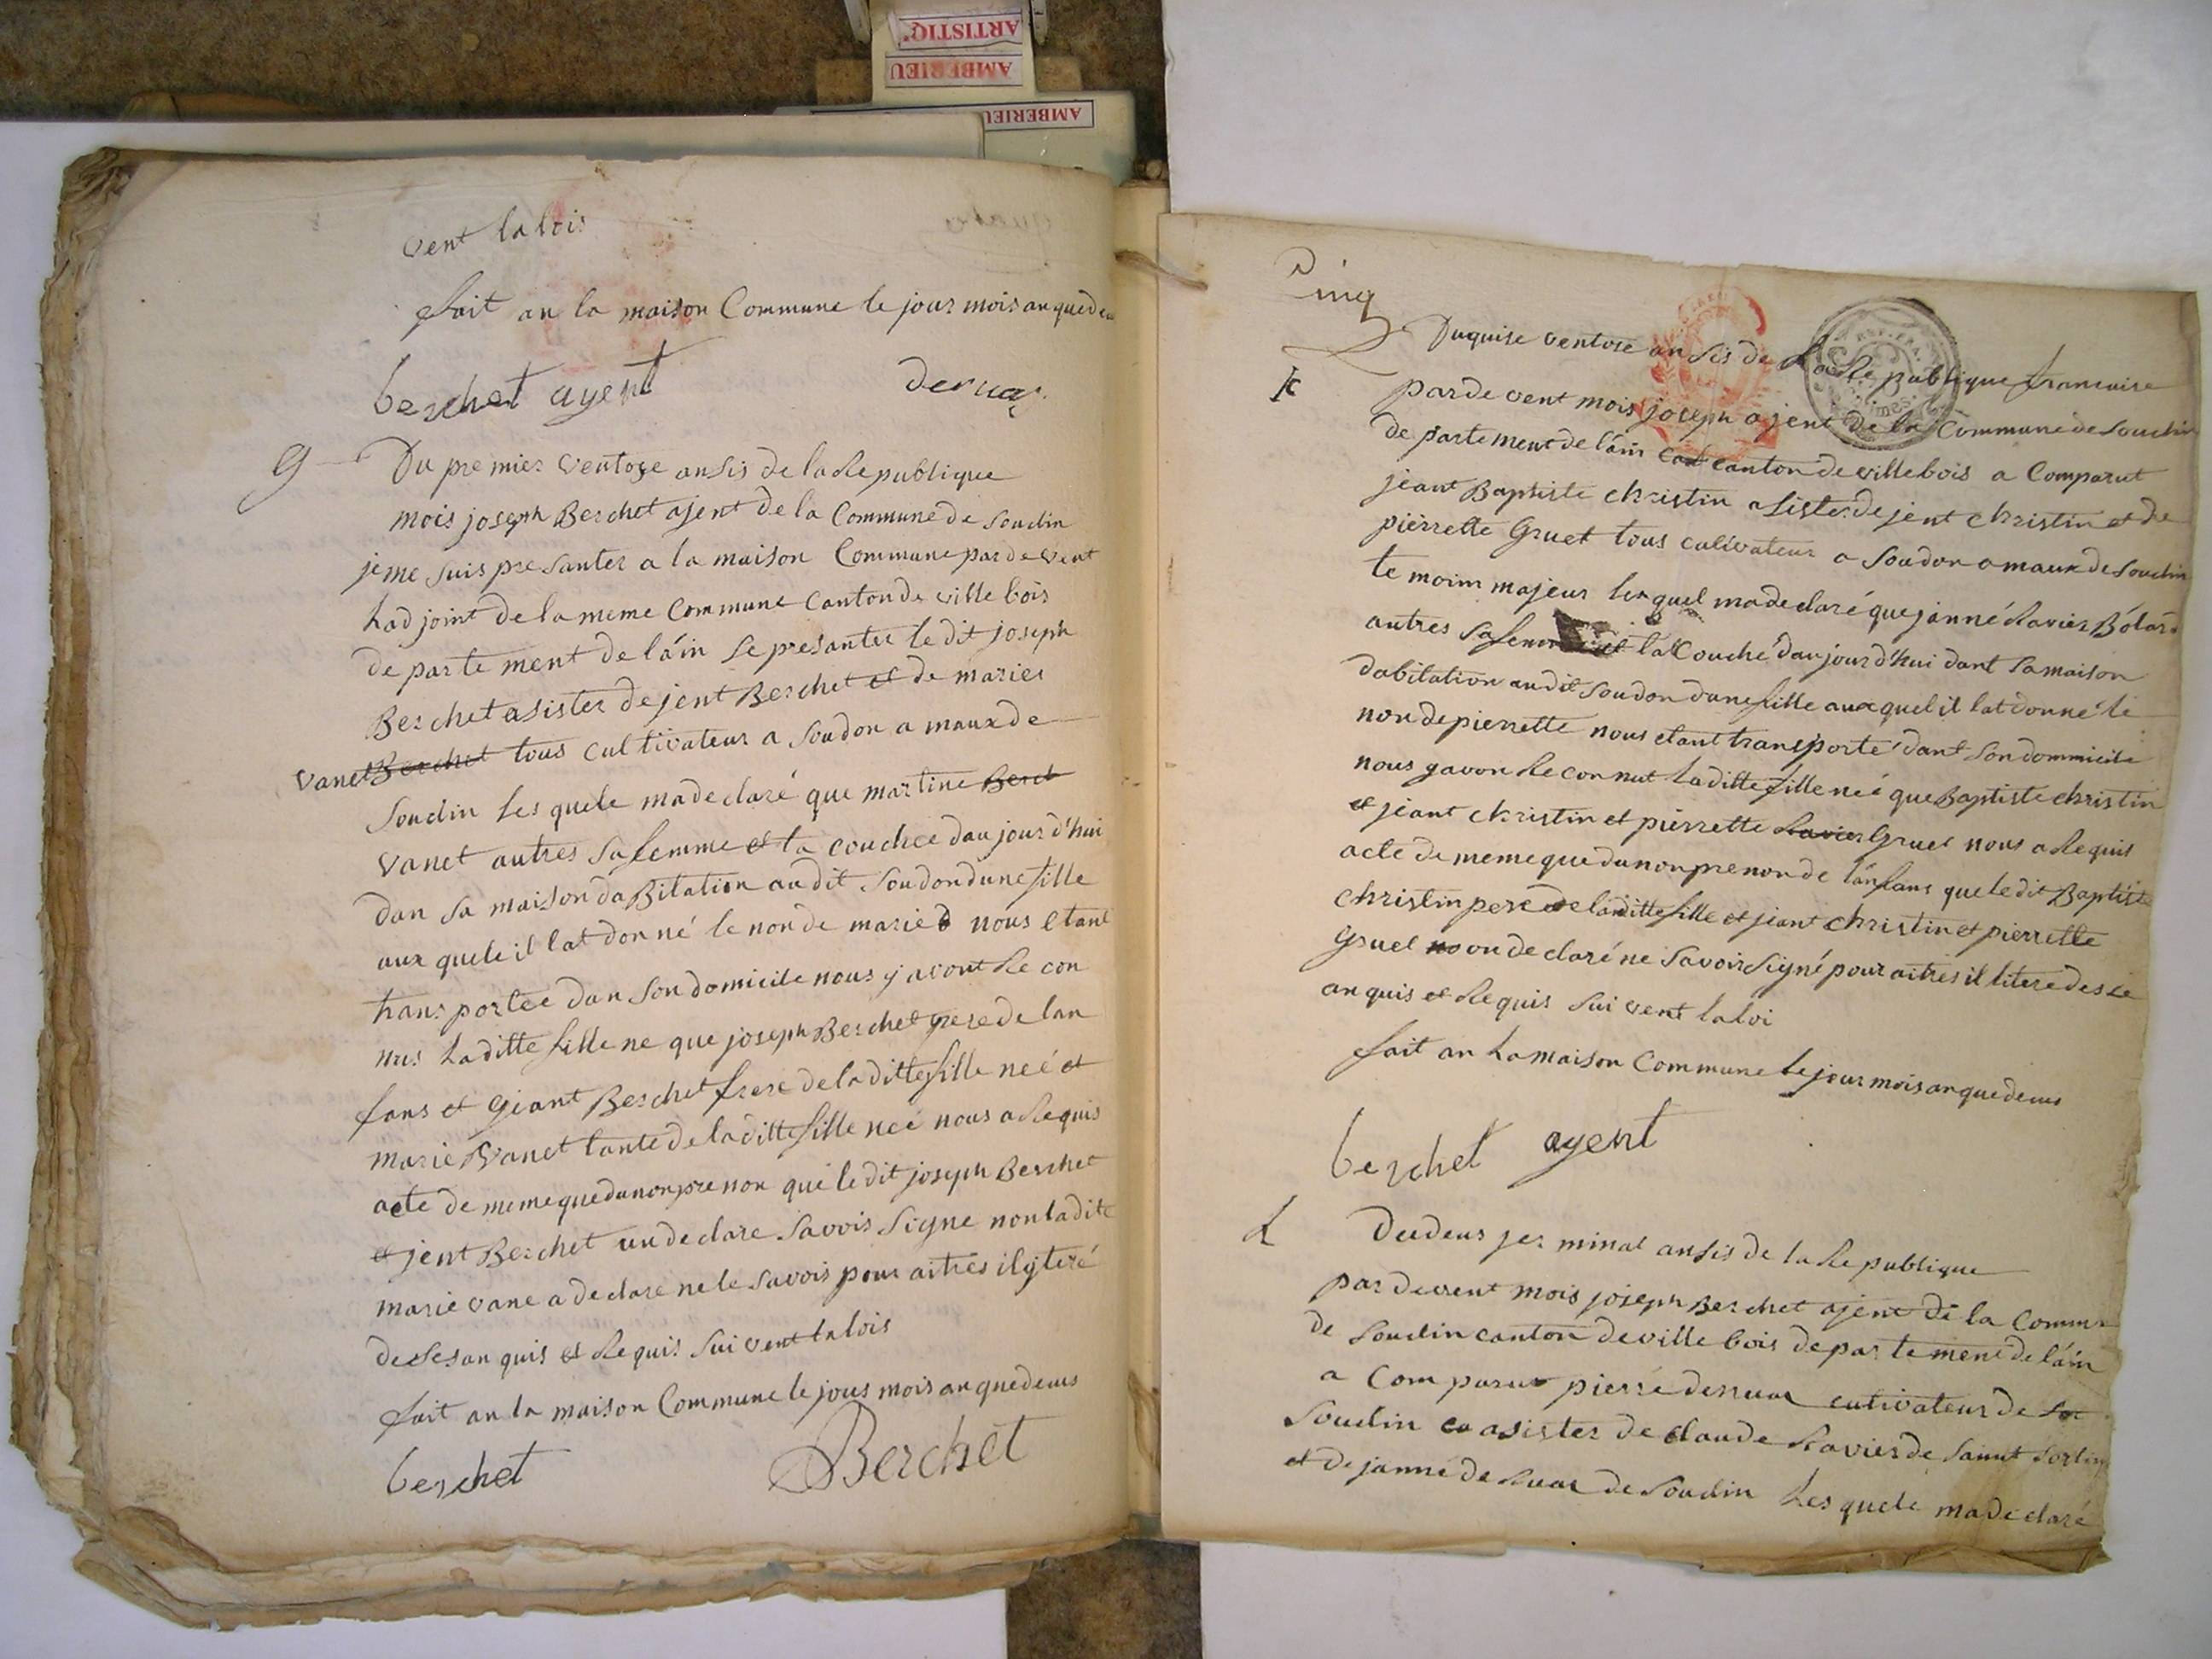 ARTISTIQ'
AMBERIEU
AMBERIEU
vent la lois
fait an la maison Commune le jour mois an que deu
berchet agent deruas
g Du premier ventose an sis de la Republique
mois joseph Berchet ajent de la Commune de Soudin
je me suis presanter a la maison Commune par de vent
had joint de la meme Commune Canton de ville bois
de parte ment de láin Se presanter le dit joseph
Berchet asister de jent Berchet et de marier
vanet Berchet tous cultivateur a Soudon a maux de
Soudin les quele ma de claré que martine Berch
vanet autres Sa femme et la couchee dau jour d'hui
dan sa maison da Bitation au dit Soudon dune fille
aux quele il lat donné le non de marie nous etant
trans portée dan Son domicile nous y avont Re con
nus la ditte fille ne que joseph Berchet pere de lan
fans et giant Berchet frere de la ditte fille neé et
marie vanet tante de la ditte fille neé nous a Requis
acte de meme que du non pre non que le dit joseph Berchet
et jent Berchet un de clare Savois Signe non la dite
marie vane a de clare ne le Savois pour aitres il yteré
de Ses an quis et Requis Sui vent la lois
fait an la maison Commune le jous mois an que deus
berchet Berchet
Cinq
Du quise ventose an sis de la Re publique francaise
K par de vent mois joseph ajent de la Commune de Soudin
de parte ment de láin cant canton de ville bois a Comparut
jeant Baptiste christin asister de jent christin et de
pierrette Gruet tous culivateur a Soudon a maux de Soudin
te moim majeur les quel ma de claré que janné Ravier Bolard
autres Sa femme et la Couché dau jour d'hui dant Sa maison
dabitation au dit Soudon dune fille aux quel il lat donné le
non de pierrette nous etant transporté dant Son dommicile
nous y avon Re connut la ditte fille neé que Baptiste christin
et jeant christin et pierrette Ravier Gruel nous a Requis
acte de meme que du non pre non de lánfans que le dit Baptiste
christin pere de la ditte fille et jeant christin et pierrette
Gruel no on de claré ne Savoir Signé pour aitres il litere des Se
an quis et Requis Sui vent la loi
fait an la maison Commune le jour mois an que deus
berchet agent
L Du deus jer minal an sis de la Re publique
par devent mois joseph Berchet ajent de la Comm
de Soudin canton de ville bois depar te ment de láin
a Com parut pierre derruas cutivateur de So
Soudin co asister de claude Ravier de Saint Sortin
et de janne de Ruas de Soudin les quele ma de claré